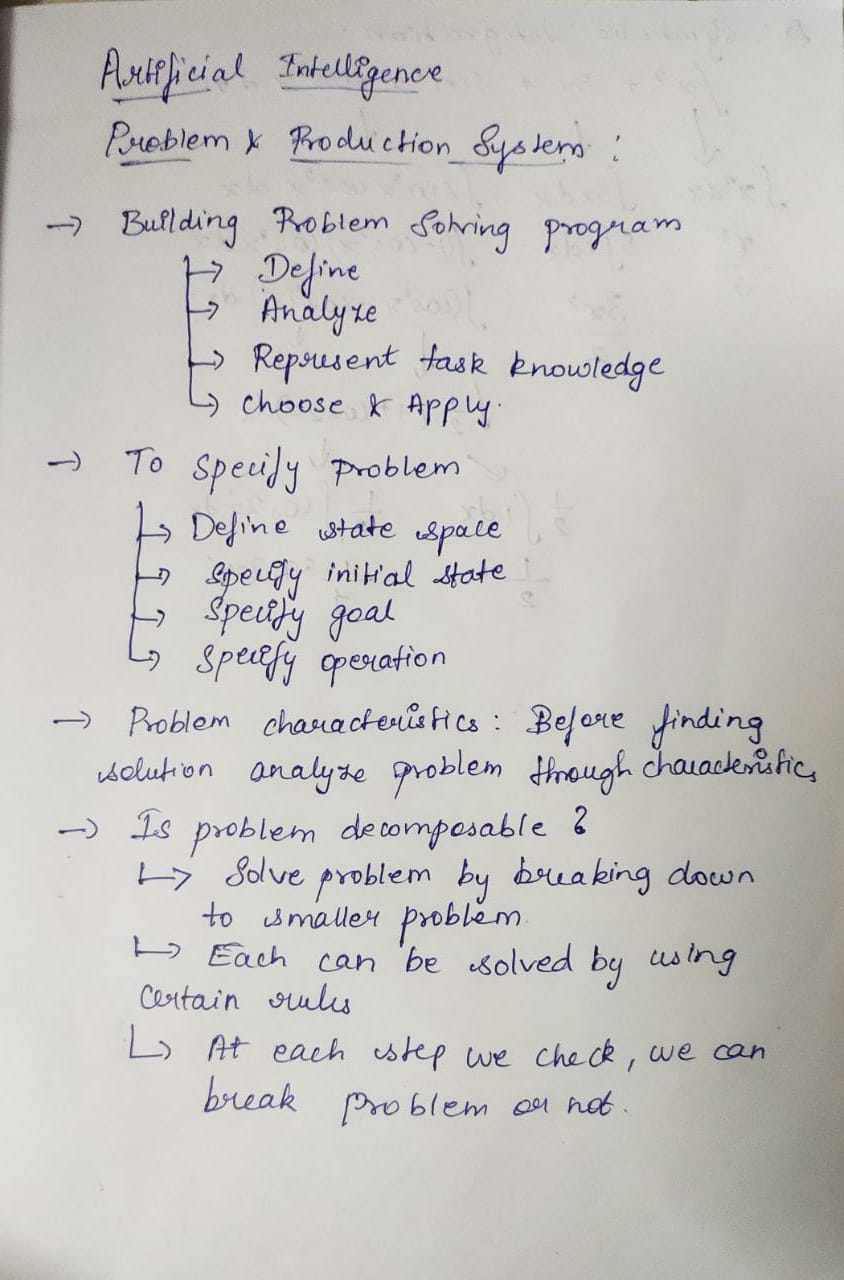 Artificial Intelligence
Problem & Production System :
→ Building Problem Solving program
→ Define
→ Analyze
→ Represent task knowledge
→ Choose & Apply.
→ To specify problem
→ Define state space
→ specify initial state
→ specify goal
→ specify operation
→ Problem characteristics : Before finding
solution analyze problem through characteristics
→ Is problem decomposable ?
→ Solve problem by breaking down
to smaller problem.
→ Each can be solved by using
certain rules
→ At each step we check, we can
break problem or not.